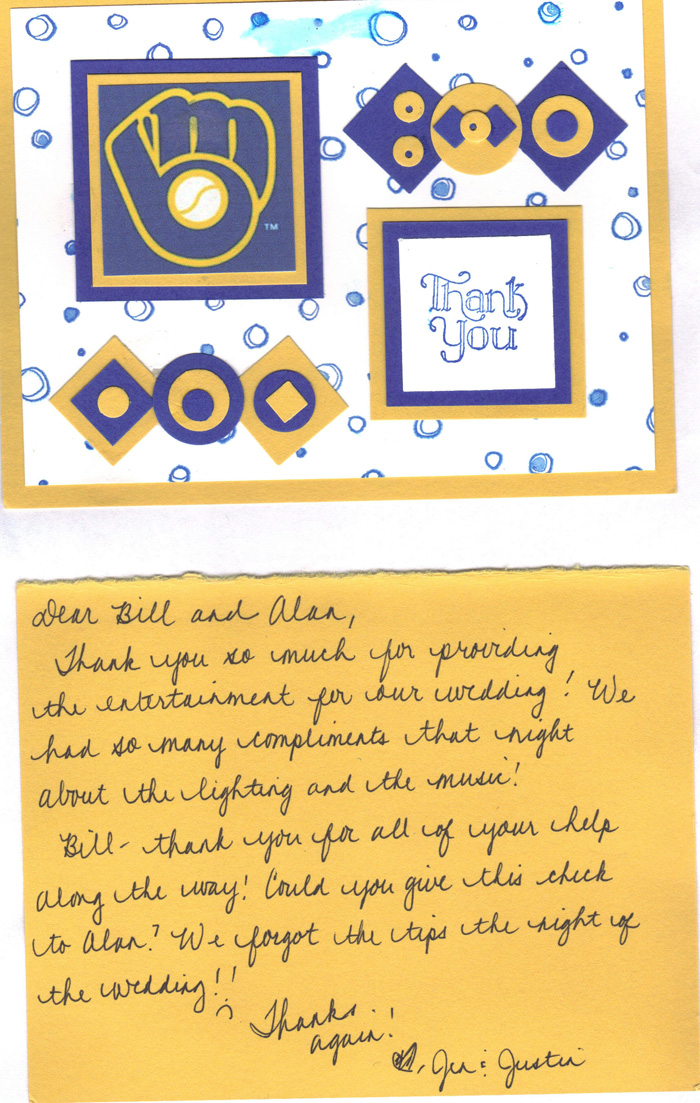 TM
Thank
You
Dear Bill and Alan,
Thank you so much for providing
the entertainment for our wedding! We
had so many compliments that night
about the lighting and the music!
Bill- thank you for all of your help
along the way! Could you give this check
to Alan? We forgot the tips the night of
the wedding!!
Thanks
again!
Jen & Justin